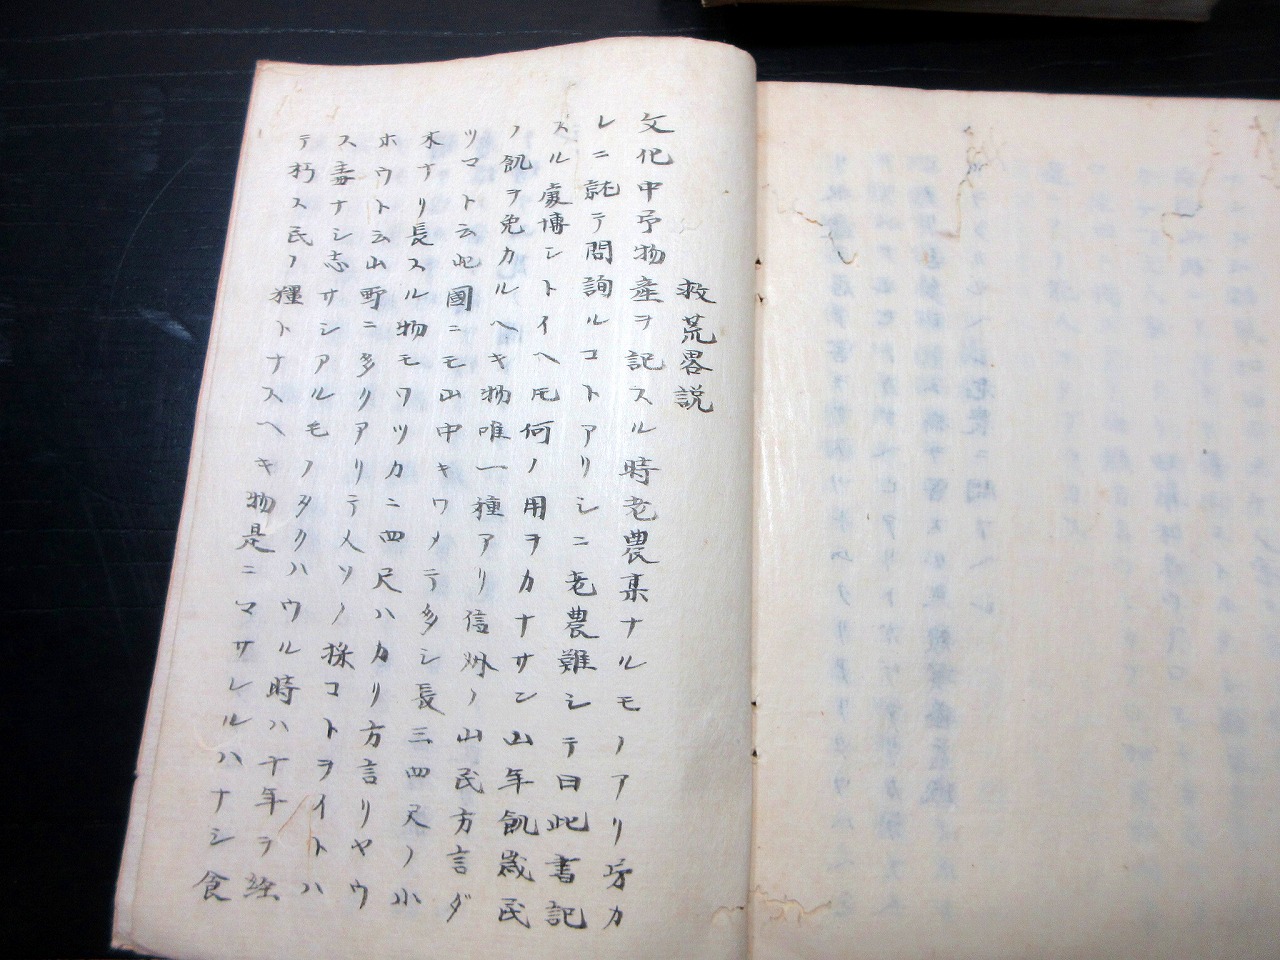 救荒畧説
文化中予物産ヲ記スル時老農某ナルモノアリ旁カ
レニ託テ問詢ルコトアリシニ老農難シテ曰此書記
スル處博シトイヘ𪜈何ノ用ヲカナサン山年飢歳民
ノ飢ヲ免カルヘキ物唯一種アリ信州ノ山民方言ダ
ツマト云此國ニモ山中キワメテ多シ長三四尺ノ小
木ナリ長スル物モワツカニ四尺ハカリ方言リヤウ
ホウト云山野ニ多クアリテ人ソノ採コトヲイトハ
ス毒ナシ志サシアルモノタクハウル時ハ十年ヲ経
テ朽ス民ノ糧トナスヘキ物是ニマサレルハナシ食